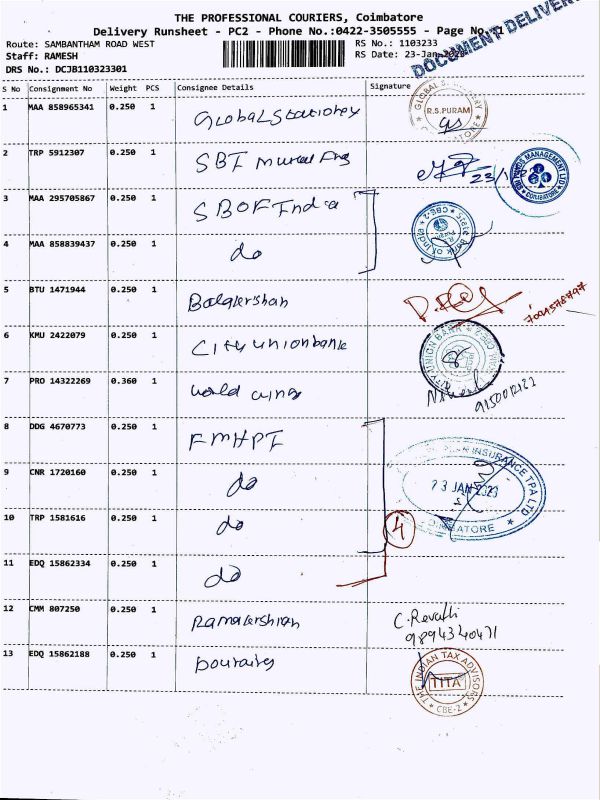 THE PROFESSIONAL COURIERS, Coimbatore
Delivery Runsheet - PC2 - Phone No.:0422-3505555 - Page No.:1
DOCUMENT DELIVERY
Route: SAMBANTHAM ROAD WEST
RS No.: 1103233
Staff: RAMESH
RS Date: 23-Jan-2023
DRS No.: DCJB110323301
S No Consignment No Weight PCS Consignee Details Signature
1 MAA 858965341 0.250 1 Global Stationery
GLOBAL STATIONERY
R.S.PURAM
2 TRP 5912307 0.250 1 SBI Mutual Fng
23/1
SBI FUNDS MANAGEMENT LTD
COIMBATORE
3 MAA 295705867 0.250 1 SBOFIndia
State Bank of India
CBE-2
4 MAA 858839437 0.250 1 do
5 BTU 1471944 0.250 1 Balakrishan
6 KMU 2422079 0.250 1 City unionbank
CITY UNION BANK
CBE-2
7 PRO 14322269 0.360 1 world wings
8 DDG 4670773 0.250 1 FMHPI
INSURANCE TPA LTD
9 CNR 1720160 0.250 1 do
23 JAN 2023
10 TRP 1581616 0.250 1 do
4
COIMBATORE
11 EDQ 15862334 0.250 1 do
12 CMM 807250 0.250 1 Ramakrshian
C. Revathi
9894340471
13 EDQ 15862188 0.250 1
THE INDIAN TAX ADVISORS
TITA
CBE-2